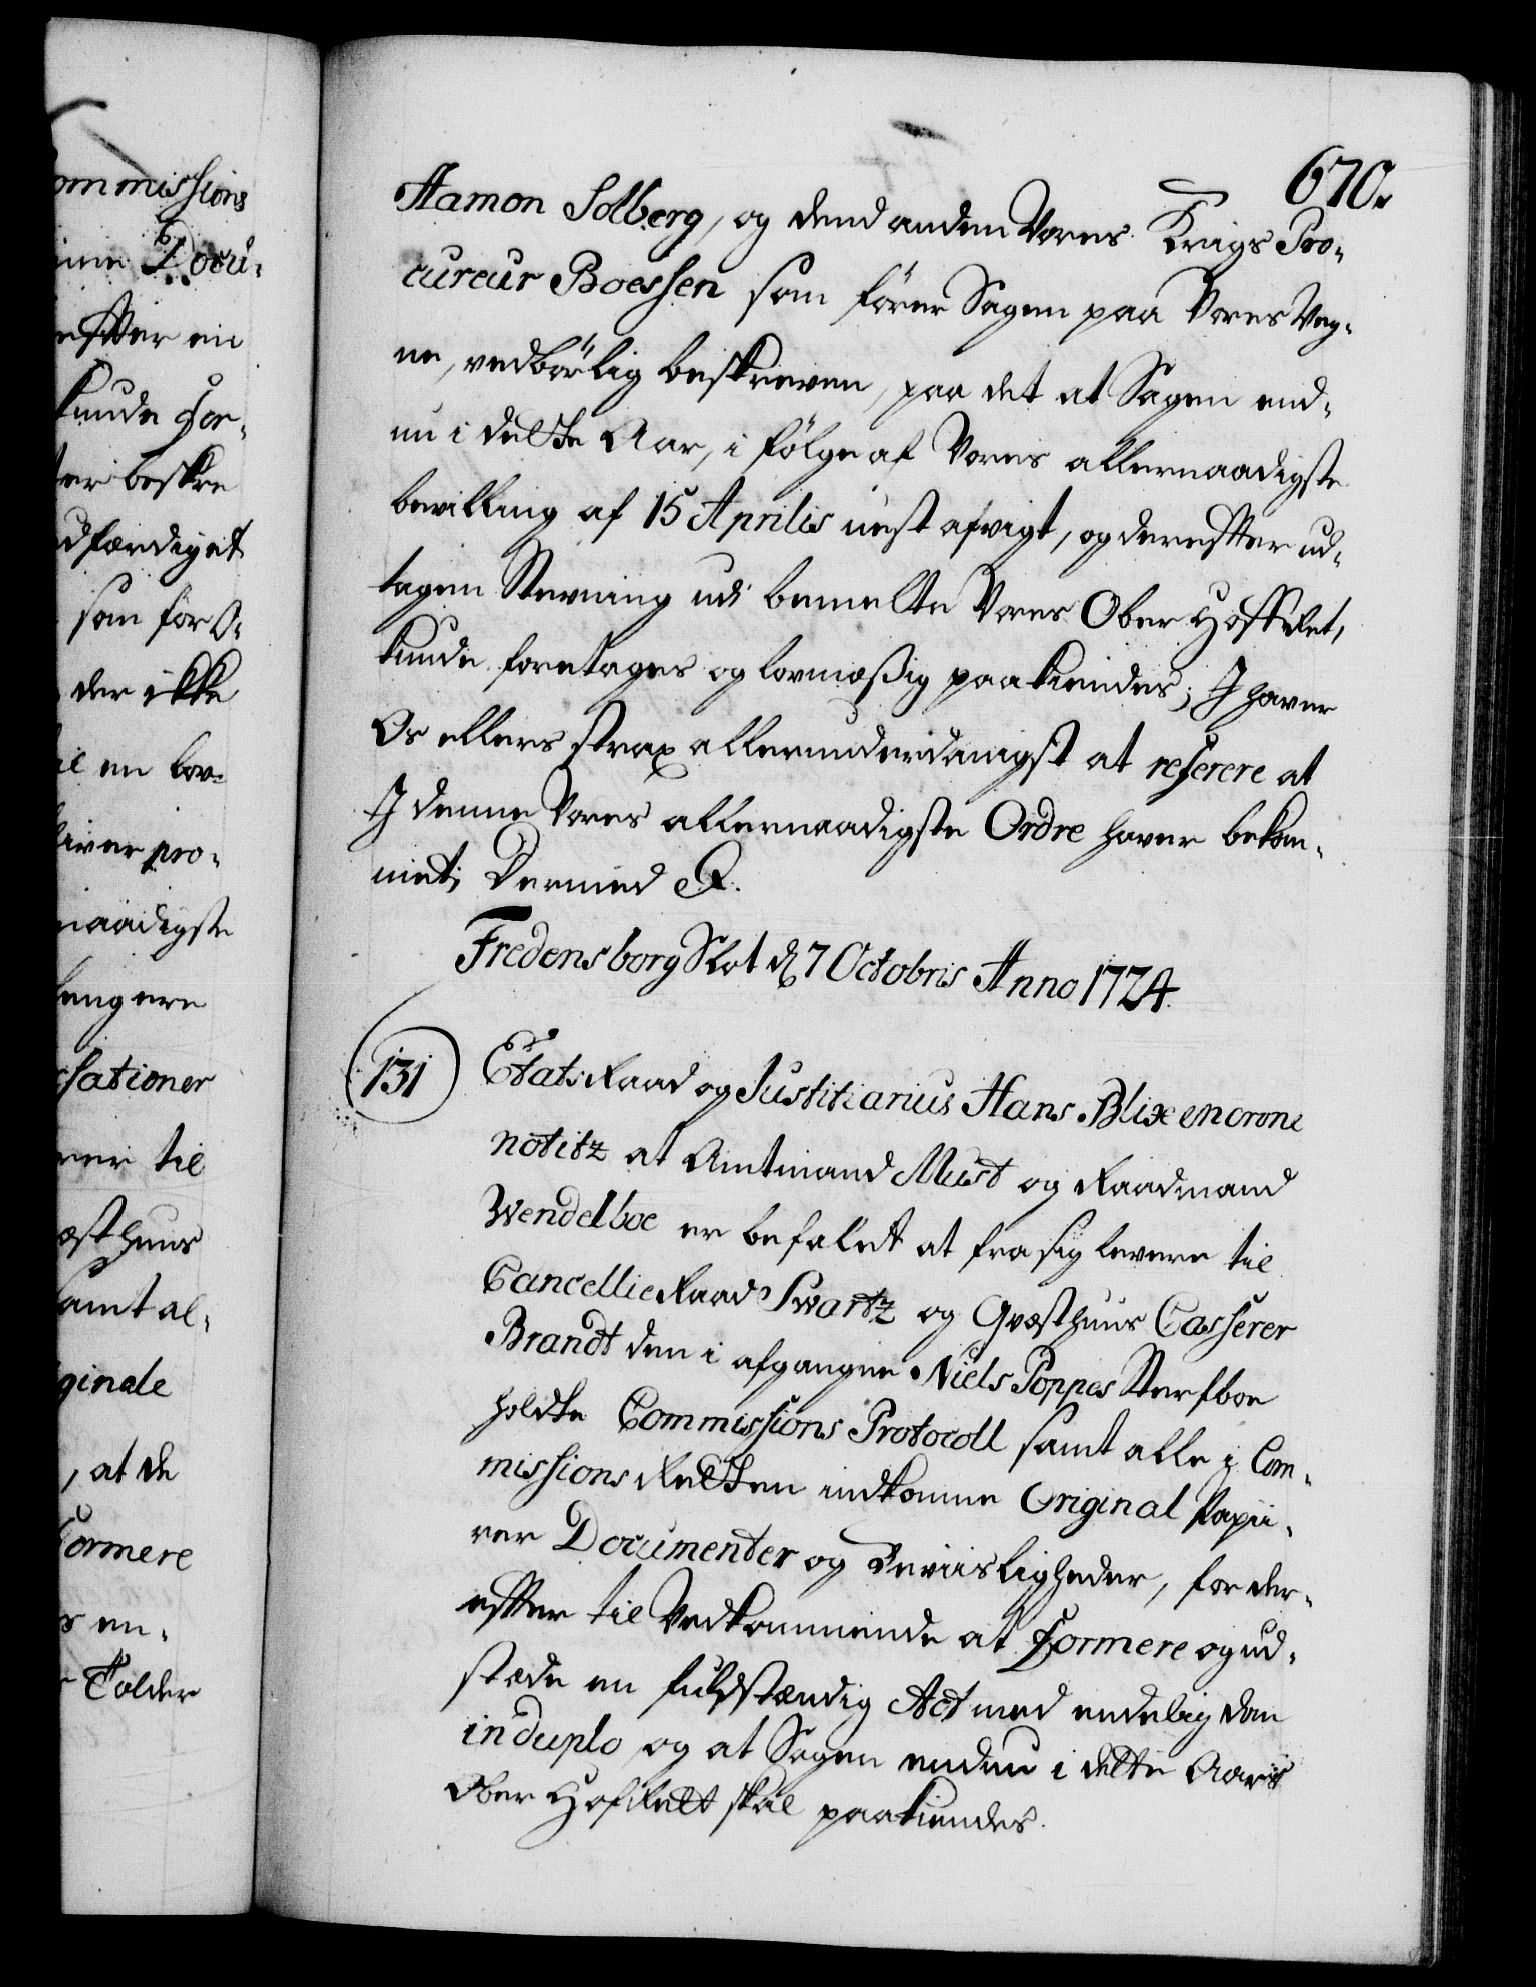 ommissions
inne Docu-
effter en
kunde for-
ter beskre
udfærdiget
som for O-
der ikke
til en lov-
bliver pro-
naadigste
længere
sationer
rer til
æsthuus
samt al-
ginale
, at de
formere
s en-
r Tolder
670.
Hamon Solberg, og dend anden Vores Krigs Pro-
cureur Boessen som fører Sagen paa Vores Veg-
ne, vedbörlig beskreven, paa det at Sagen end-
nu i dette Aar, i følge af Vores allernaadigste
bevilling af 15 Aprilis nest afvigt, og dereffter ud-
tagen Stevning udi bemelte Vores Ober Hoff Ret,
kunde foretages og lovmæßig paakiendes; I haver
Os ellers strax allerunderdanigst at referere at
I denne Vores allernaadigste Ordre haver bekom-
met; Dermed &.
Fredensborg Slot d 7 Octobris Anno 1724.
131
Etats Raad og Justitiarius Hans Blixencrone
notitz at Amtmand Must og Raadmand
Wendelboe er befalet at fra sig levere til
Cancellie Raad Swartz og Qvæsthuus Casserer
Brandt den i afgangne Niels Poppes Sterfboe
holdte Commissions Protocoll samt alle i Com-
missions Retten indkomne Original Papii-
rer Documenter og Beviisligheder, for der-
effter til Vedkommende at formere og ud-
stæde en fuldstændig Act med endelig dom
in duplo, og at Sagen endnu i dette Aars
Ober Hof Rett skal paakiendes.